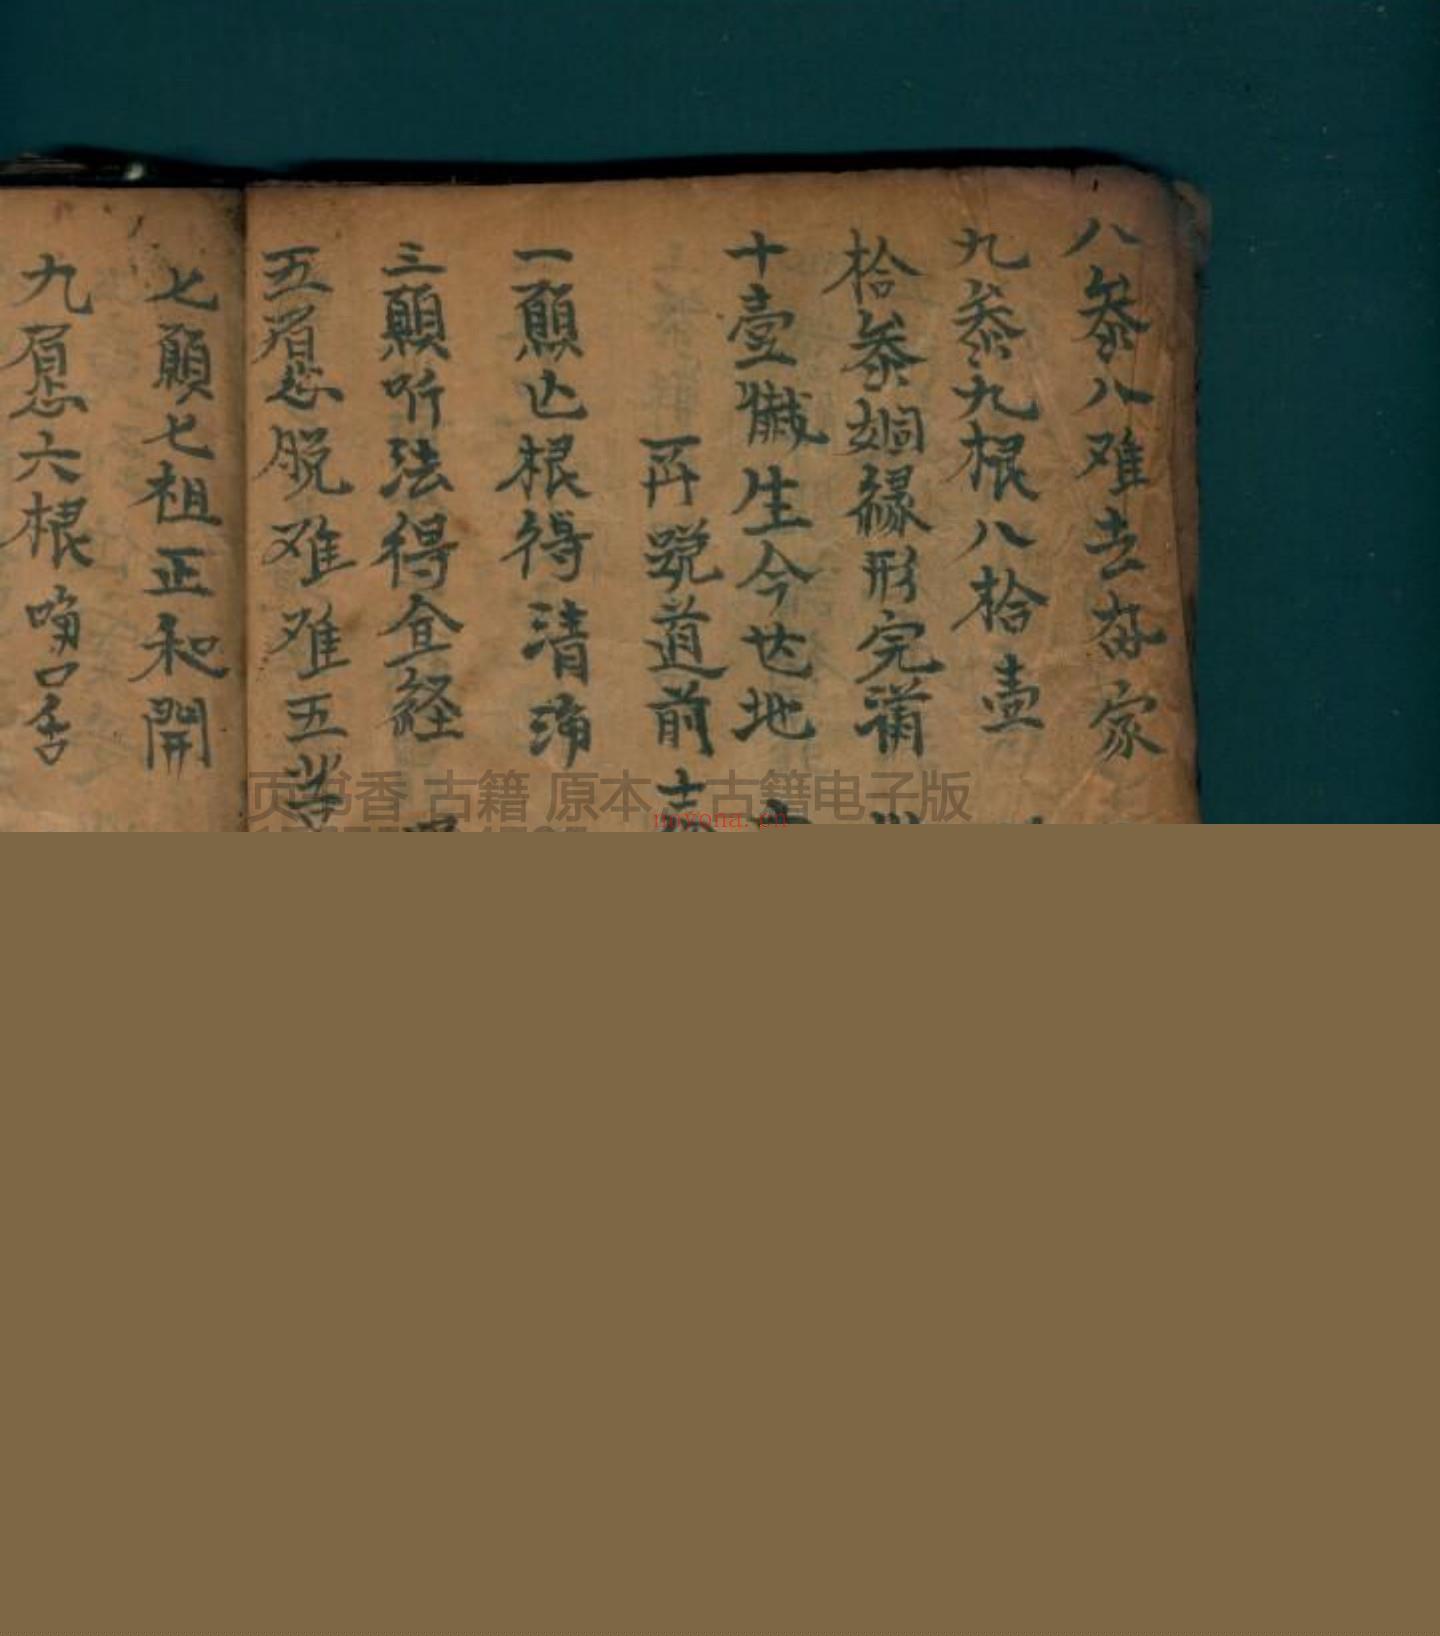 八叅八难去奔家
九叅九根八拾壷
拾叅姻緣形完满
十壹懴生今世地
再說道前
一願六根得清淨
三願听法得金経
五愿脱难难五苦
七願七祖正和開
九愿六根喚口舌
页书香 古籍 原本 古籍电子版